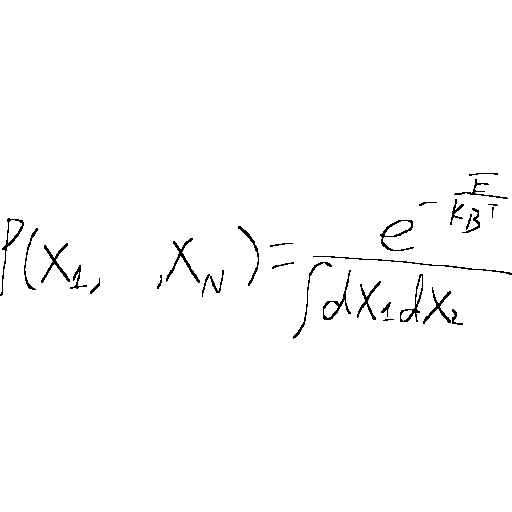 P(x_1, ,x_N)=\frac{e^{-\frac{E}{k_BT}}}{\int dx_1dx_2}